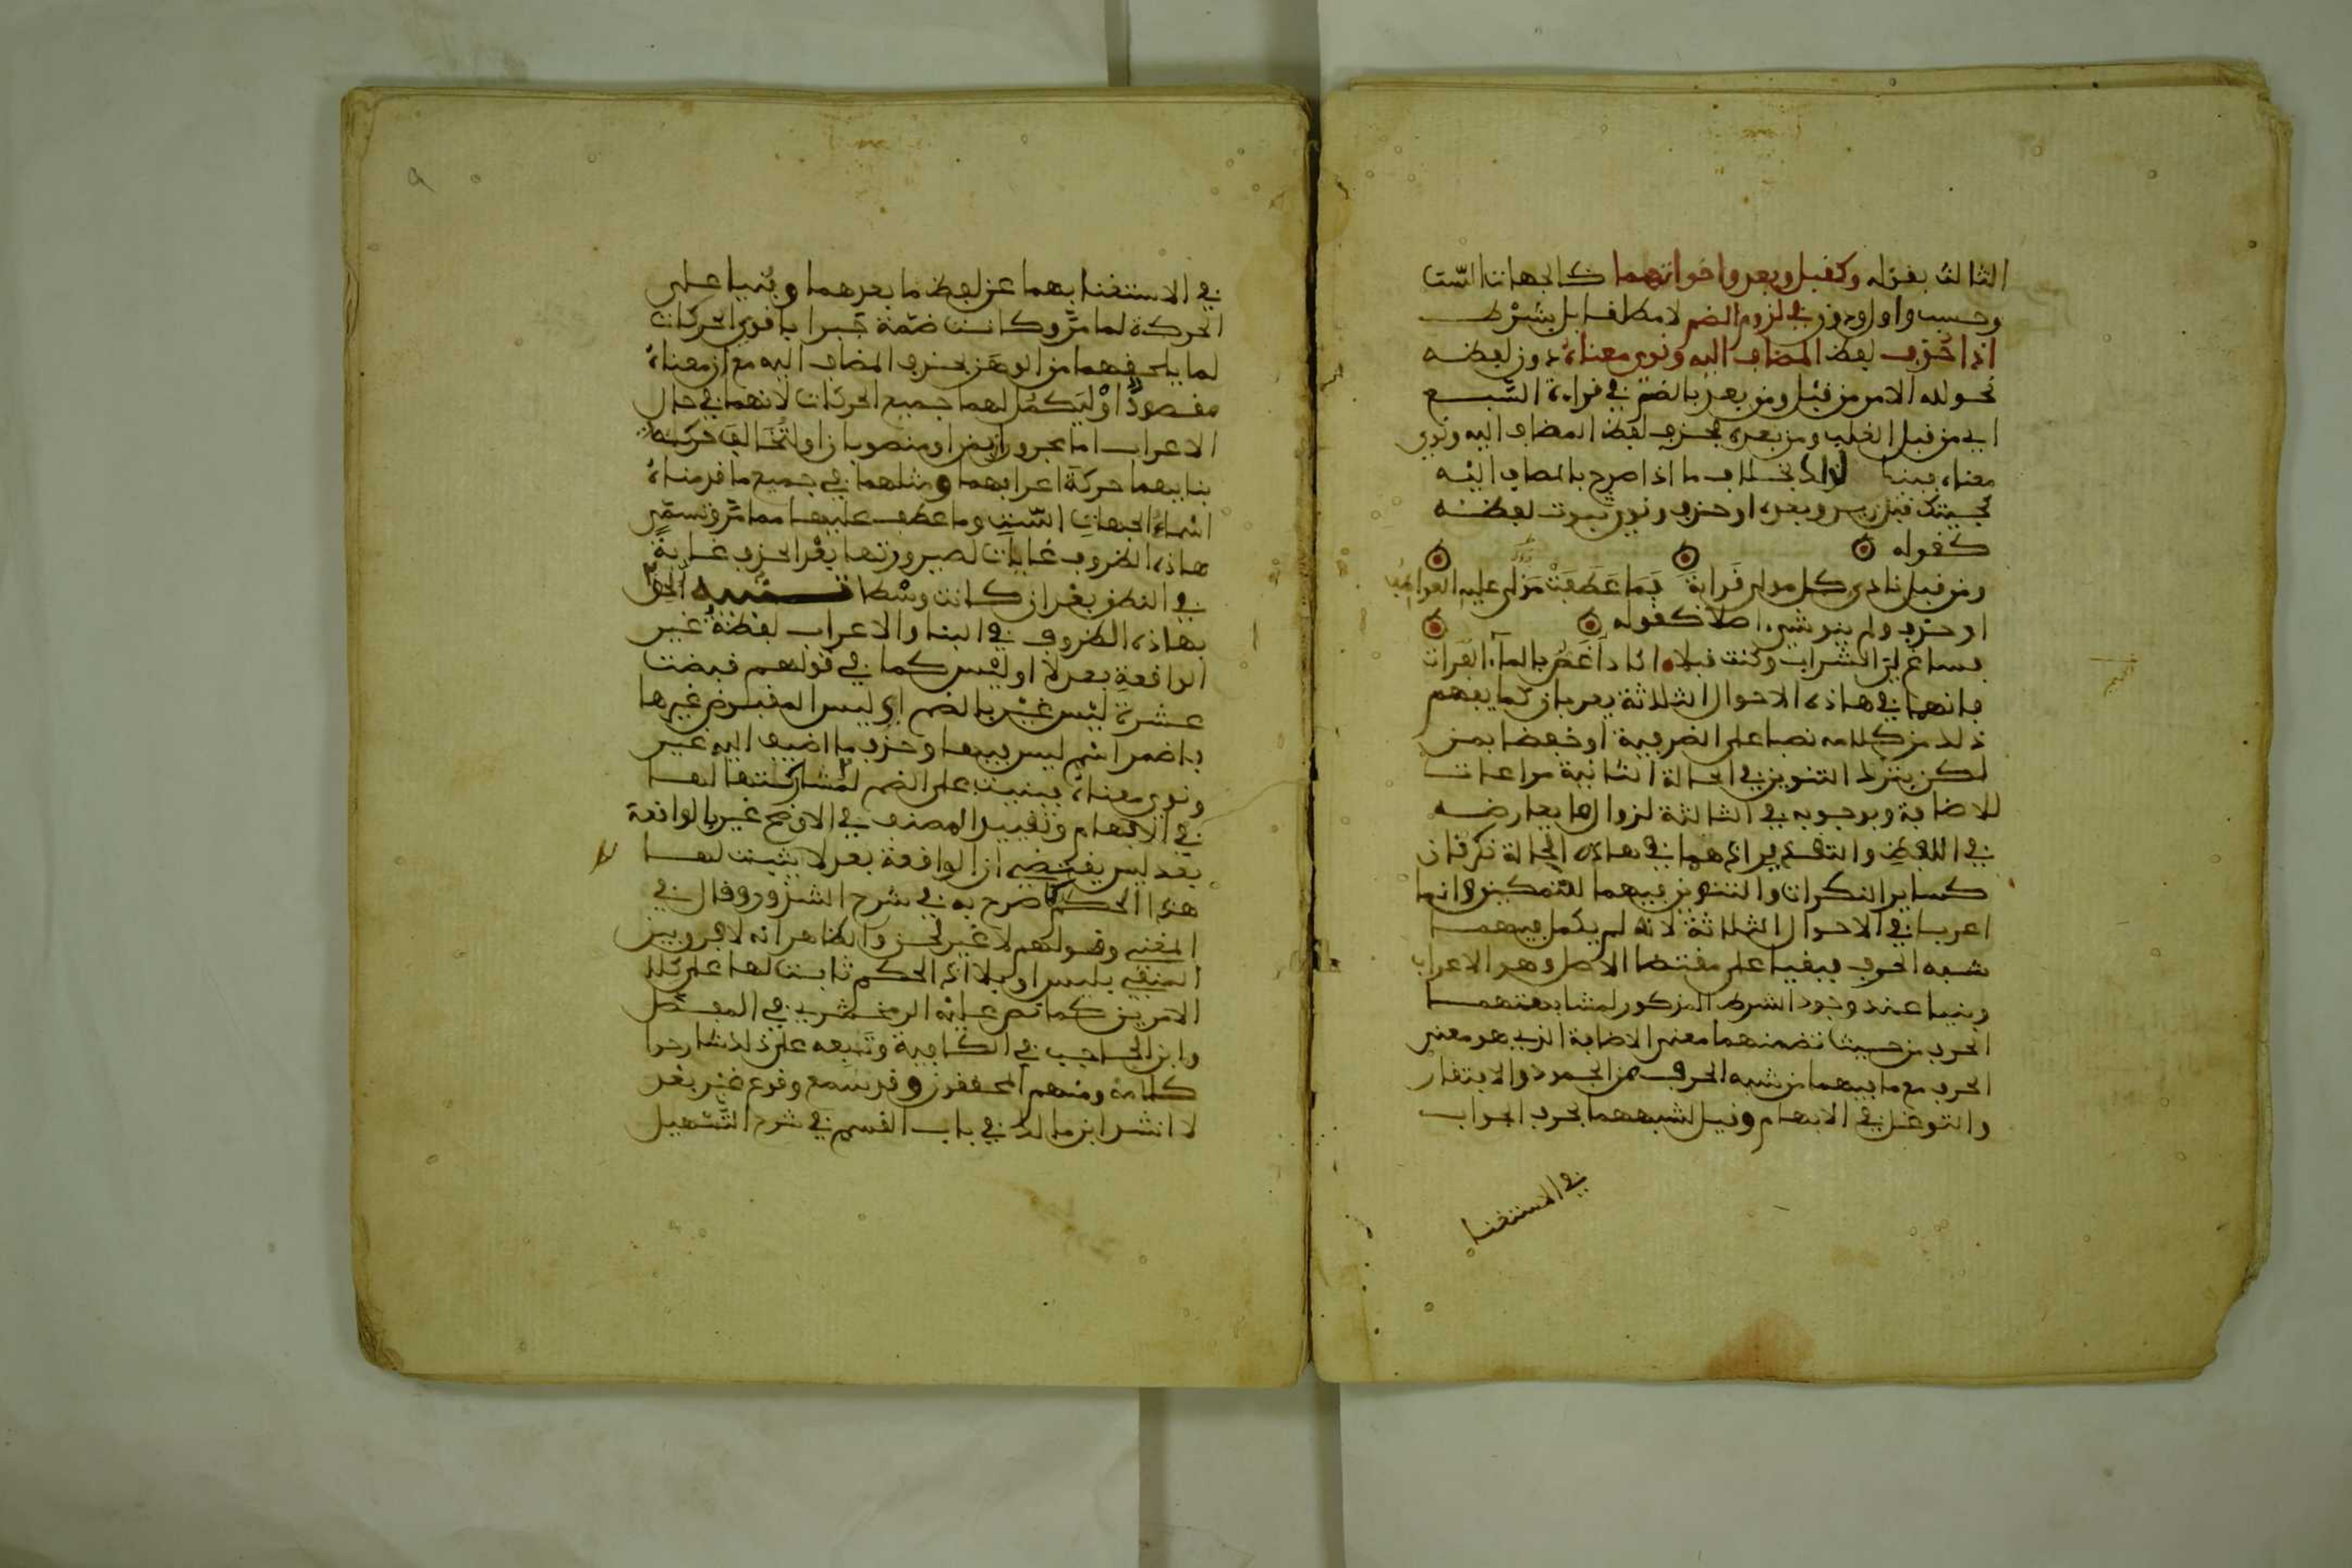 الثالث بقوله وكقبل وبعد واخواتهما كالجهات الست
وحسب واول ودون في لزوم الضم لا مطلقا بل بشرط
اذا حذف لفظ المضاف اليه ونوي معناه دون لفظه
نحو لله الامر من قبل ومن بعد بالضم في قراءة السبع
اي من قبل الغلب ومن بعده فحذف لفظ المضاف اليه ونوي
معناه فبنيا لذلك بخلاف ما اذا صرح بالمضاف اليه
كجيتك قبل زيد وبعده او حذف ونوي ثبوت لفظه
كقوله
ومن قبل نادى كل مولى قرابة فما عطفت مولى عليه العواطف
او حذف ولم ينو شيء اصلا كقوله
فساغ لي الشراب وكنت قبلا اكاد اغص بالماء الفرات
فانهما في هاذه الاحوال الثلاثة يعربان كما يفهم
ذلك من كلامه نصبا على الظرفية او خفضا بمن
لكن بترك التنوين في الحالة الثانية مراعات
للاضافة وبوجوبه في الثالثة لزوال ما يعارضه
في اللفظ والتقدير اذ هما في هاذه الحالة نكرتان
كساير النكرات والتنوين فيهما للتمكين وانما
اعربا في الاحوال الثلاثة لانه لم يكمل فيهما
شبه الحرف فبقيا على مقتضا الاصل وهو الاعراب
وبنيا عند وجود الشرط المذكور لمشابهتهما
الحرف من حيث تضمنهما معنى الاضافة الذي هو معنى
الحرف مع ما فيهما من شبه الحرف من الجمود والافتقار
والتوغل في الابهام وقيل لشبههما بحرف الجواب
في الاستغنا
في الاستغنا بهما عن لفظ ما بعدهما وبنيا على
الحركة لما مر وكانت ضمة جبرا باقوى الحركات
لما يلحقهما من الوهن بحذف المضاف اليه مع ان معناه
مقصود او ليكمل لهما جميع الحركات لانهما في حال
الاعراب اما مجروران بمن او منصوبان او لتخالف حركة
بنايهما حركة اعرابهما ومثلهما في جميع ما قدمناه
اسماء الجهات الست وما عطف عليها مما مر وتسمى
هاذه الظروف غايات لصيرورتها بعد الحذف غاية
في النطق بعد ان كانت وسطا تنبيه الحق
بهاذه الظروف في البنا والاعراب لفظة غير
الواقعة بعد لا او ليس كما في قولهم قبضت
عشرة ليس غير بالضم اي ليس المقبوض غيرها
باضمر اسم ليس فيها وحذف ما اضيف اليه غير
ونوي معناه فبنيت على الضم لمشاركتها لها
في الابهام وتقييد المصنف في الاوضح غير بالواقعة
بعد ليس يقتضي ان الواقعة بعد لا يثبت لها
هذا الحكم كما صرح به في شرح الشذور وقال في
المغني وقولهم لا غير لحن والظاهر انه لا فرق بين
المنفي بليس او بلا اذ الحكم ثابت لها على كلا
الامرين كما نص عليه الزمخشري في المفصل
وابن الحاجب في الكافية وتبعه على ذلك شارحوا
كلامه ومنهم المحققون وقد سمع وقوع غير بعد
لا انشد ابن مالك في باب القسم في شرح التسهيل